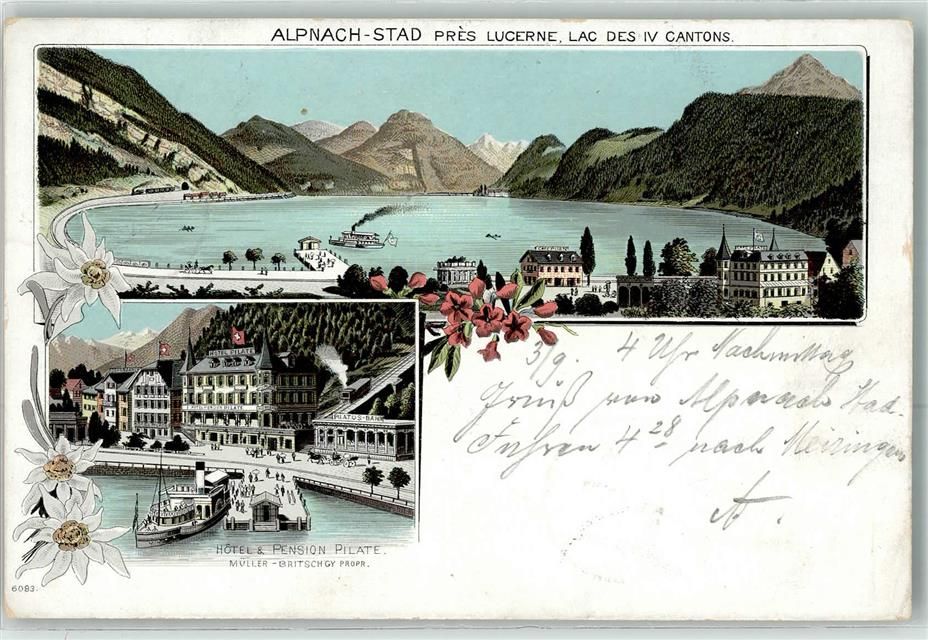 ALPNACH-STAD PRÈS LUCERNE, LAC DES IV CANTONS.
HOTEL PILATE
PILATUS-BAHN
HÔTEL & PENSION PILATE.
MÜLLER-BRITSCHGY PROPR.
6093.
3/9. 4 Uhr Nachmittag
Gruß von Alpnach Stad.
Fahren 4 28 nach Meiringen
A.